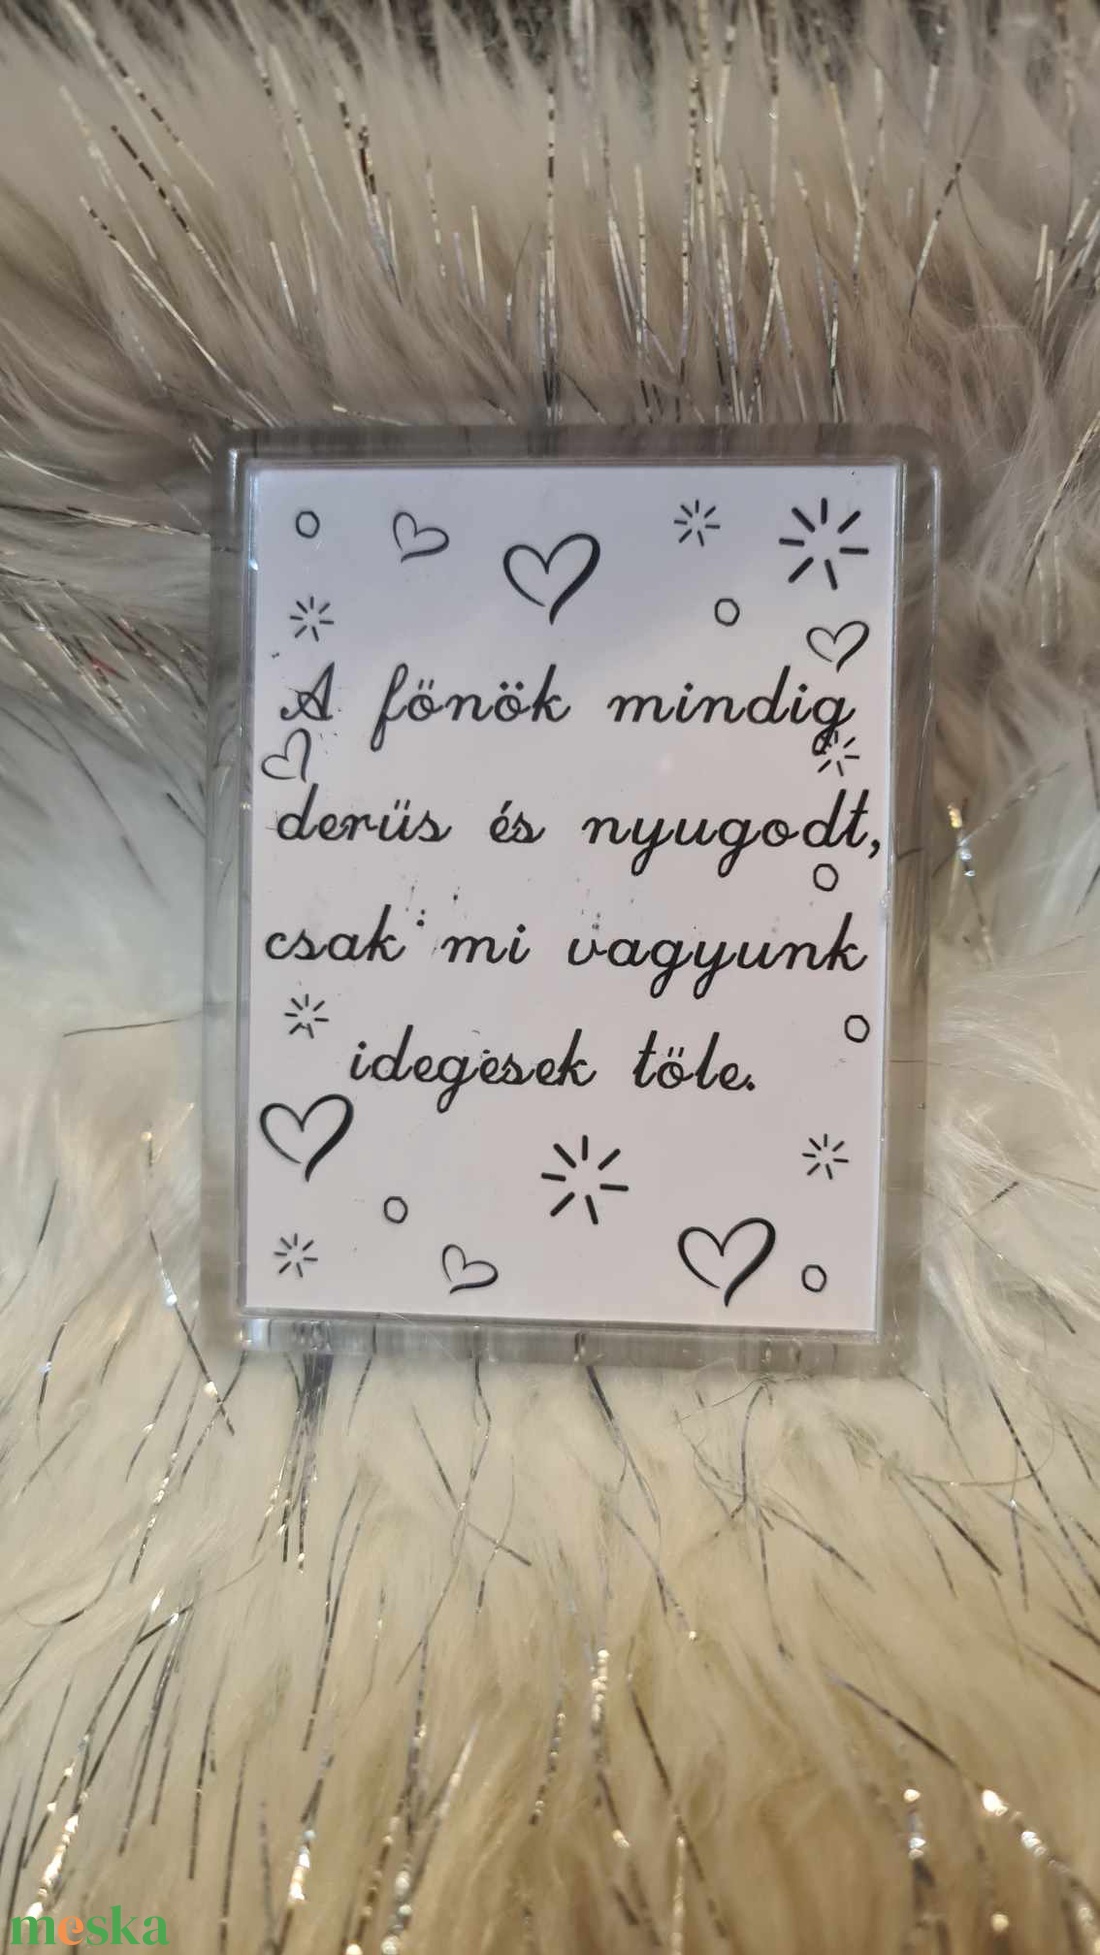 A főnök mindig
derüs és nyugodt,
csak mi vagyunk
idegesek töle.
meska